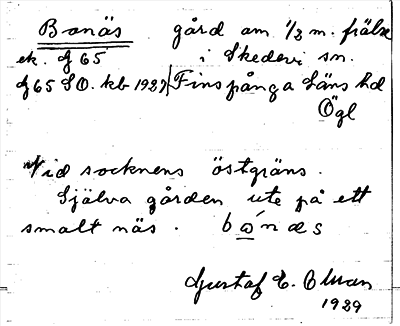 Bonäs gård om 1/2 m. frälse
ek. g 65 i Skedevi sn.
g 65 SO. kb 1927 Finspånga läns hd
Ögl
Vid socknens östgräns.
Själva gården ute på ett
smalt näs.
Gustaf E.
1929